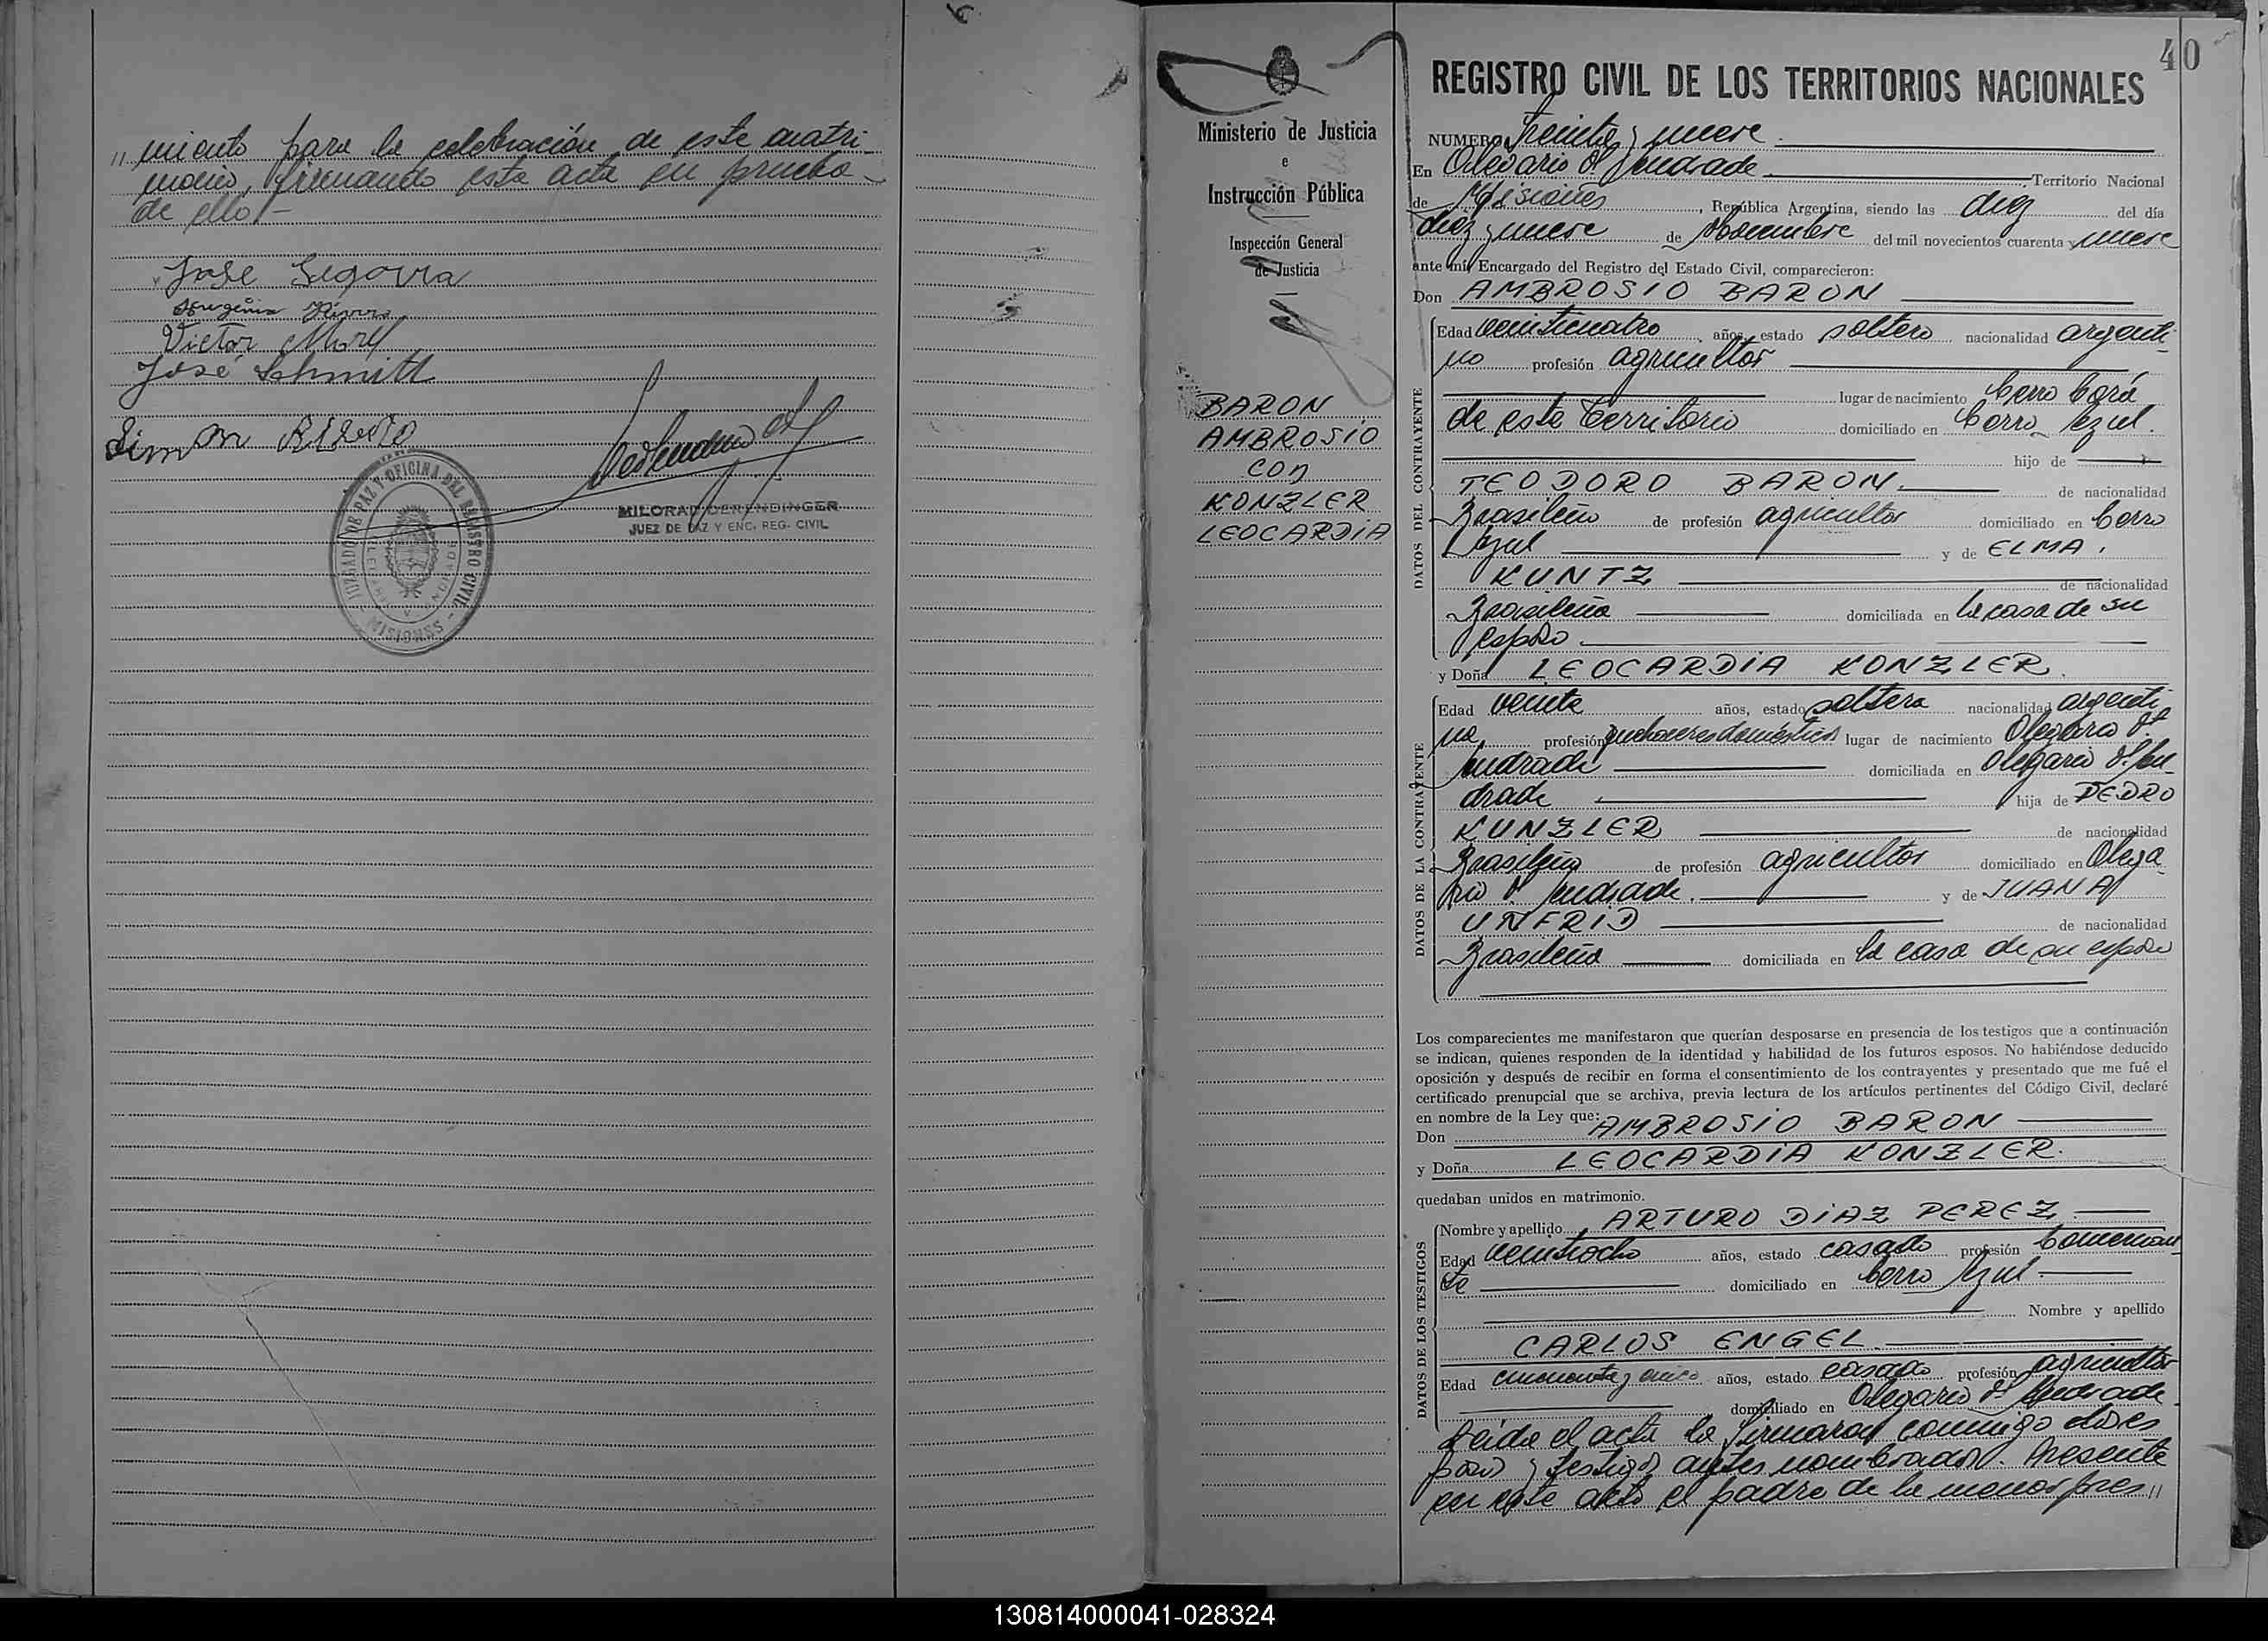 // miento para la celebración de este matri-
monio, firmando esta acta en prueba
de ello.-
José Segovia
Victor Morel
José Schmitt
MILORAD DERENDINGER
JUEZ DE PAZ Y ENC. REG. CIVIL
JUZGADO DE PAZ Y OFICINA DEL REGISTRO CIVIL
MISIONES
40
Ministerio de Justicia
e
Instrucción Pública
Inspección General
de Justicia
BARON
AMBROSIO
CON
KONZLER
LEOCARDIA
REGISTRO CIVIL DE LOS TERRITORIOS NACIONALES
NUMERO Treinta y nueve
En Olegario V. Andrade Territorio Nacional
de Misiones, República Argentina, siendo las diez del día
diez y nueve de Noviembre del mil novecientos cuarenta y nueve
ante mí, Encargado del Registro del Estado Civil, comparecieron:
Don AMBROSIO BARON
DATOS DEL CONTRAYENTE
Edad veinticuatro años, estado soltero nacionalidad argenti-
no profesión agricultor
lugar de nacimiento Cerro Corá
de este Territorio domiciliado en Cerro Azul.
hijo de
TEODORO BARON. de nacionalidad
Brasileño de profesión agricultor domiciliado en Cerro
Azul y de ELMA
KUNTZ de nacionalidad
Brasileña domiciliada en la casa de su
esposo
y Doña LEOCARDIA KONZLER.
DATOS DE LA CONTRAYENTE
Edad veinte años, estado soltera nacionalidad argenti
na profesión quehaceres domésticos lugar de nacimiento Olegario V.
Andrade domiciliada en Olegario V. An-
drade hija de PEDRO
KUNZLER de nacionalidad
Brasileño de profesión agricultor domiciliado en Olega
rio V. Andrade. y de JUANA
UNFRID de nacionalidad
Brasileña domiciliada en la casa de su esposo
Los comparecientes me manifestaron que querían desposarse en presencia de los testigos que a continuación
se indican, quienes responden de la identidad y habilidad de los futuros esposos. No habiéndose deducido
oposición y después de recibir en forma el consentimiento de los contrayentes y presentado que me fué el
certificado prenupcial que se archiva, previa lectura de los artículos pertinentes del Código Civil, declaré
en nombre de la Ley que:
Don AMBROSIO BARON
y Doña LEOCARDIA KONZLER.
quedaban unidos en matrimonio.
DATOS DE LOS TESTIGOS
Nombre y apellido ARTURO DIAZ PEREZ
Edad veintiocho años, estado casado profesión Comercian
te domiciliado en Cerro Azul
Nombre y apellido
CARLOS ENGEL
Edad cincuenta y cinco años, estado casado profesión agricultor
domiciliado en Olegario V. Andrade
Leída el acta la firmaron conmigo los es
posos y testigos antes nombrados. Presente
en este acto el padre de la menor pres //
130814000041-028324